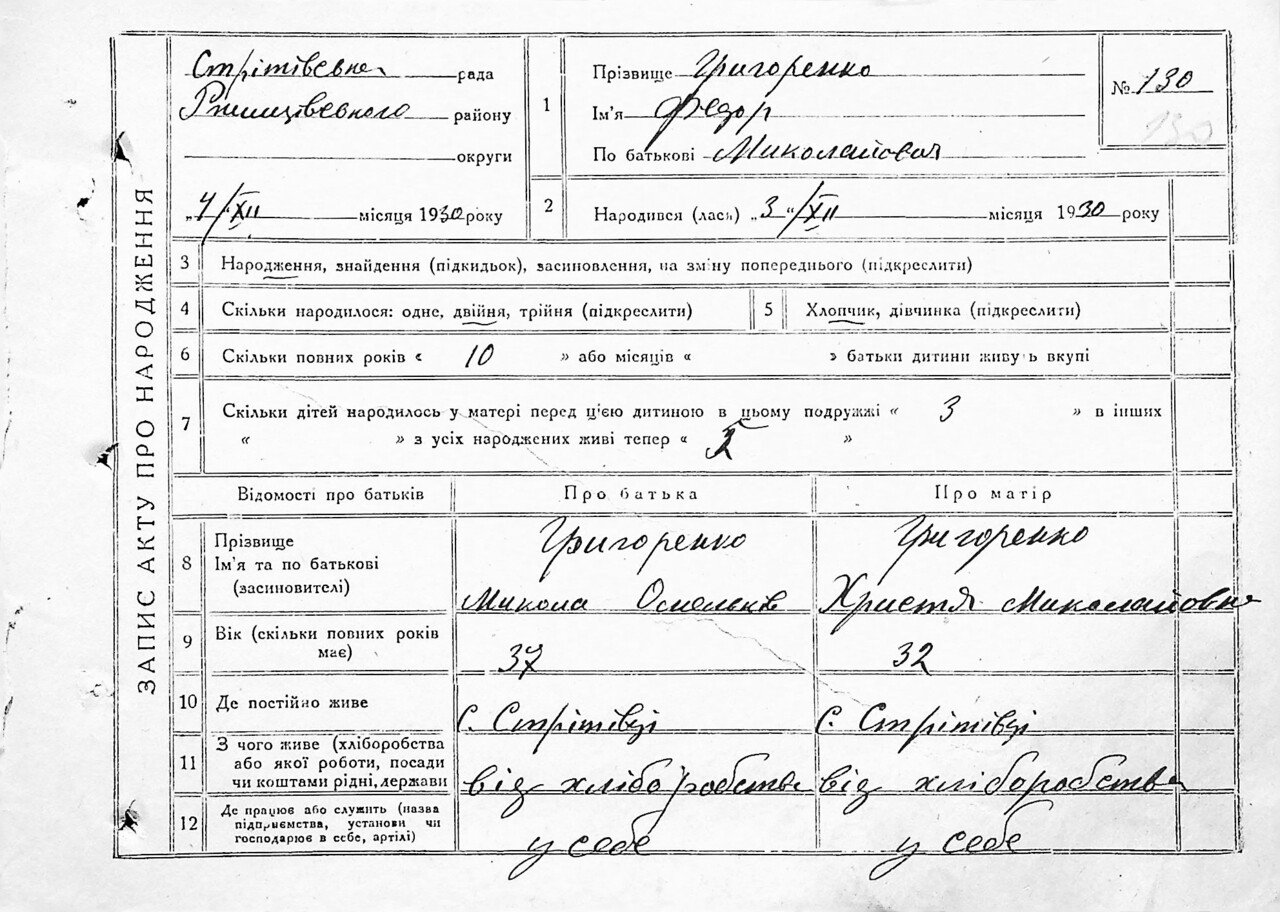 ЗАПИС АКТУ ПРО НАРОДЖЕННЯ
Стрітівська рада
Ржищівського району
округи
„4/XII місяця 1930 року
1
Прізвище Григоренко
Ім'я Федор
По батькові Миколайович
№ 130
130
2 Народився (лась) „3“/XII місяця 1930 року
3 Народження, знайдення (підкидьок), засиновлення, на зміну попереднього (підкреслити)
4 Скільки народилося: одне, двійня, трійня (підкреслити)
5 Хлопчик, дівчинка (підкреслити)
6 Скільки повних років « 10 » або місяців « » батьки дитини живуть вкупі
7 Скільки дітей народилось у матері перед цією дитиною в цьому подружжі « 3 » в інших
« » з усіх народжених живі тепер « »
Відомості про батьків Про батька Про матір
8 Прізвище
Ім'я та по батькові
(засиновителі)
Григоренко
Микола Омельків
Григоренко
Христя Миколайовна
9 Вік (скільки повних років
має)
37 32
10 Де постійно живе с. Стрітівці с. Стрітівці
11 З чого живе (хліборобства
або якої роботи, посади
чи коштами рідні, держави
від хліборобства від хліборобства
12 Де працює або служить (назва
підприємства, установи чи
господарює в себе, артілі)
у себе у себе